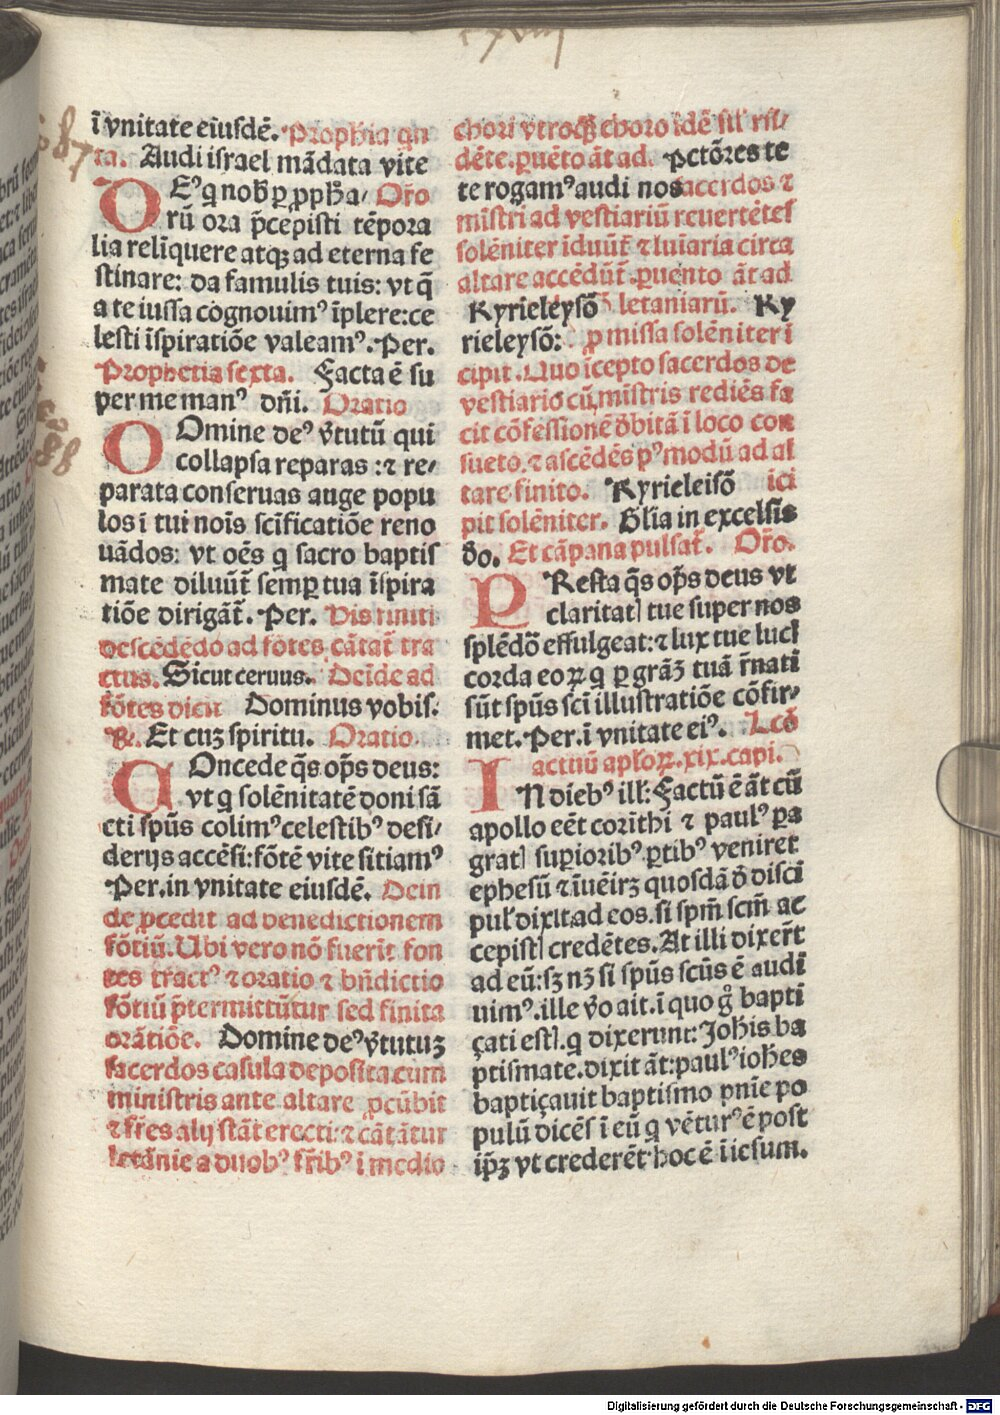 cxviij
ī vnitate eiusdē. Prophīa qn
ta. Audi israel mādata vite
DE⁹ q nob̄ ꝑ ꝓph̄a/ Or̄o
rū ora p̄cepisti tēpora
lia reliquere atqꝫ ad eterna fe
stinare: da famulis tuis: vt q̄
a te iussa cognouim⁹ īplere:ce
lesti īspiratiōe valeam⁹. Per.
Prophetia sexta. Facta ē su
per me man⁹ dn̄i. Oratio
DOmine de⁹ v̄tutū qui
collapsa reparas :⁊ re/
parata conseruas auge popu
los ī tui nois̄ scīficatiōe reno
uādos: vt oēs q sacro baptis
mate diluūt̄ semꝑ tua īspira
tiōe dirigāt̄. Per. His finiti
descēdēdo ad fōtes cātat̄ tra
ctus. Sicut ceruus. Deīde ad
fōtes dicit Dominus vobis.
℟. Et cuꝫ spiritu. Oratio.
COncede q̄s op̄s deus:
vt q solēnitatē doni sā
cti spūs colim⁹ celestib⁹ desi/
derijs accēsi:fōtē vite sitiam⁹
Per.in vnitate eiusdē. Dein
de ꝓcedit ad benedictionem
fōtiū. Ubi vero nō fuerīt fon
tes tract⁹ ⁊ oratio ⁊ bn̄dictio
fōtiū p̄termittūtur sed finita
orātiōe. Domine de⁹ v̄tutuꝫ
sacerdos casula deposita cum
ministris ante altare ꝓcūbit
⁊ fr̄es alij stāt erecti:⁊ cātātur
letanie a duob⁹ fr̄ib⁹ ī medio
chori vtroqꝫ choro idē sīl rn̄/
dēte.ꝑuēto āt ad. Pctōres te
te rogam⁹ audi nos sacerdos ⁊
mīstri ad vestiariū reuertētes
solēniter īduūt̄ ⁊ lumīaria circa
altare accēdūt̄ .ꝑuento āt ad
Kyrieleysō letaniarū. Ky
rieleysō: ꝓ missa solēniter ī
cipit. Quo īcepto sacerdos de
vestiario cū mīstris rediēs fa
cit cōfessionē debitā ī loco con
sueto.⁊ ascēdēs p⁹modū ad al
tare finito. Kyrieleisō ici
pit solēniter. Glīa in excelsis
deo. Et cāpana pulsat̄. Or̄o.
PResta q̄s op̄s deus vt
claritatꝭ tue super nos
splēdō effulgeat:⁊ lux tue lucꝭ
corda eoꝝ q ꝑ grāꝫ tuā r̄nati
sūt spūs scī illustratiōe cōfir/
met.Per.ī vnitate ei⁹. Lcō
actuū apl̄oꝝ.xix.capi.
IN dieb⁹ ill̄: Factū ē āt cū
apollo eēt corīthi ⁊ paul⁹ ꝑa
gratꝭ superiorib⁹ ꝑtib⁹ veniret
ephesū ⁊ īuēirꝫ quosdā d̄ disci
pul̄ dixit ad eos. si spm̄ scm̄ ac
cepistꝭ credētes. At illi dixer̄t
ad eū:sꝫ nꝫ si spūs scūs ē audī
uim⁹.ille v̄o ait.ī quo g̊ bapti
çati estꝭ.q dixerunt: Joh̄is ba
ptismate.dixit āt:paul⁹ ioh̄es
baptiçauit baptismo pnīe po
pulū dicēs ī eū q vētur⁹ ē post
ip̄ꝫ vt crederēt hoc ē ī iesum.
87
88
Digitalisierung gefördert durch die Deutsche Forschungsgemeinschaft - DFG